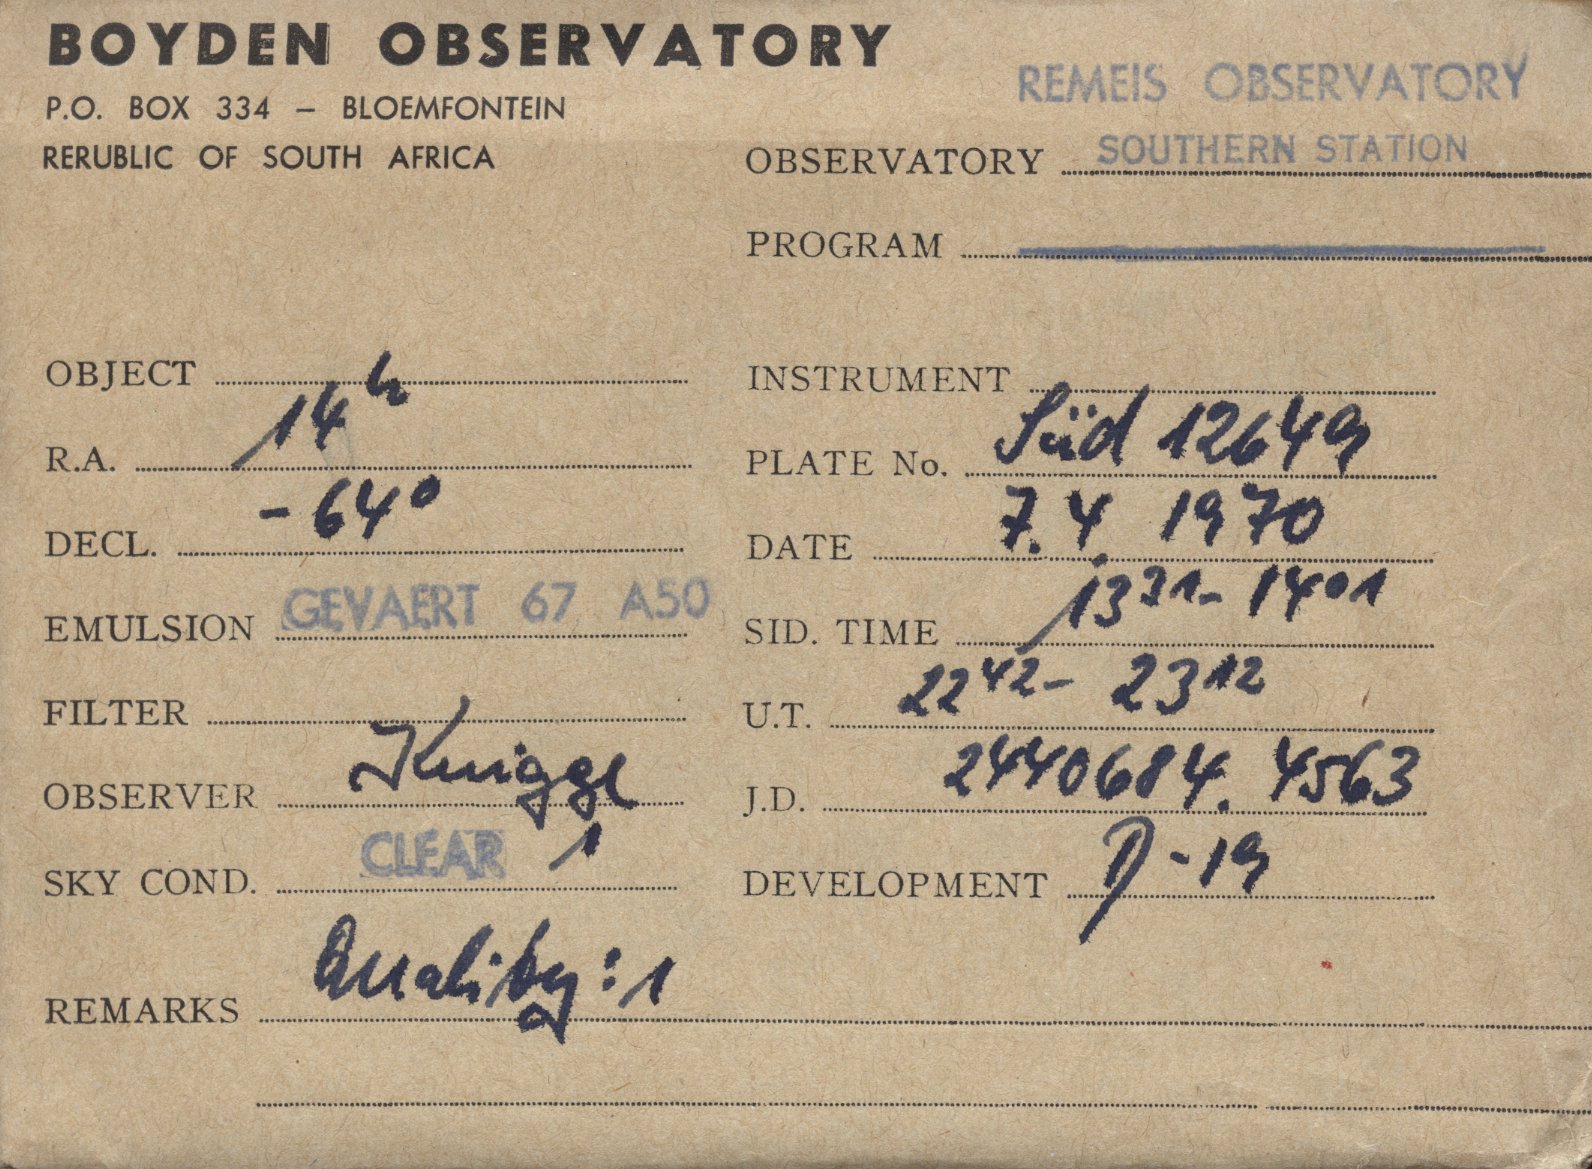 BOYDEN OBSERVATORY
P.O. BOX 334 – BLOEMFONTEIN
RERUBLIC OF SOUTH AFRICA
REMEIS OBSERVATORY
OBSERVATORY SOUTHERN STATION
PROGRAM
OBJECT
R.A. 14h
DECL. -64°
EMULSION GEVAERT 67 A50
FILTER
OBSERVER Knigge
SKY COND. CLEAR 1
REMARKS Quality: 1
INSTRUMENT
PLATE No. Süd 12649
DATE 7.4. 1970
SID. TIME 13 31 - 14 01
U.T. 22 42 - 23 12
J.D. 2440684.4563
DEVELOPMENT D-19